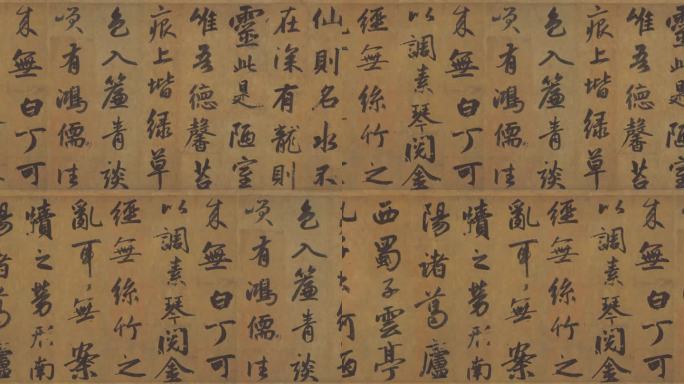 靈此是陋室
惟吾德馨苔
痕上堦緑草
色入簾青談
咲有鴻儒往
來無白丁可
以調素琴閱金
經無絲竹之
仙則名水不
在深有龍則
靈此是陋室
惟吾德馨苔
痕上堦緑草
色入簾青談
咲有鴻儒往
來無白丁可
來無白丁可
以調素琴閱金
經無絲竹之
亂耳無案
牘之勞形南
陽諸葛廬
西蜀子雲亭
色入簾青談
咲有鴻儒往
來無白丁可
以調素琴閱金
經無絲竹之
亂耳無案
牘之勞形南
陽諸葛廬